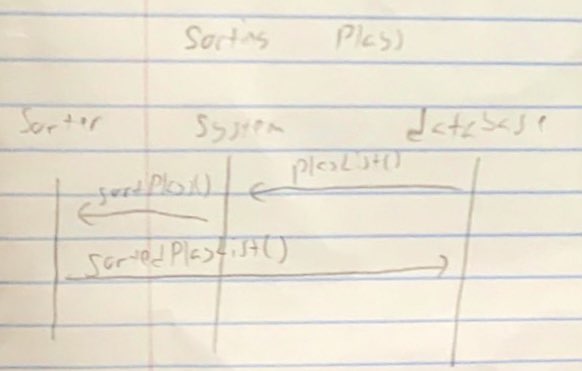 Sorting Plays
Sorter System database
playList()
sortPlay()
SortedPlayList()